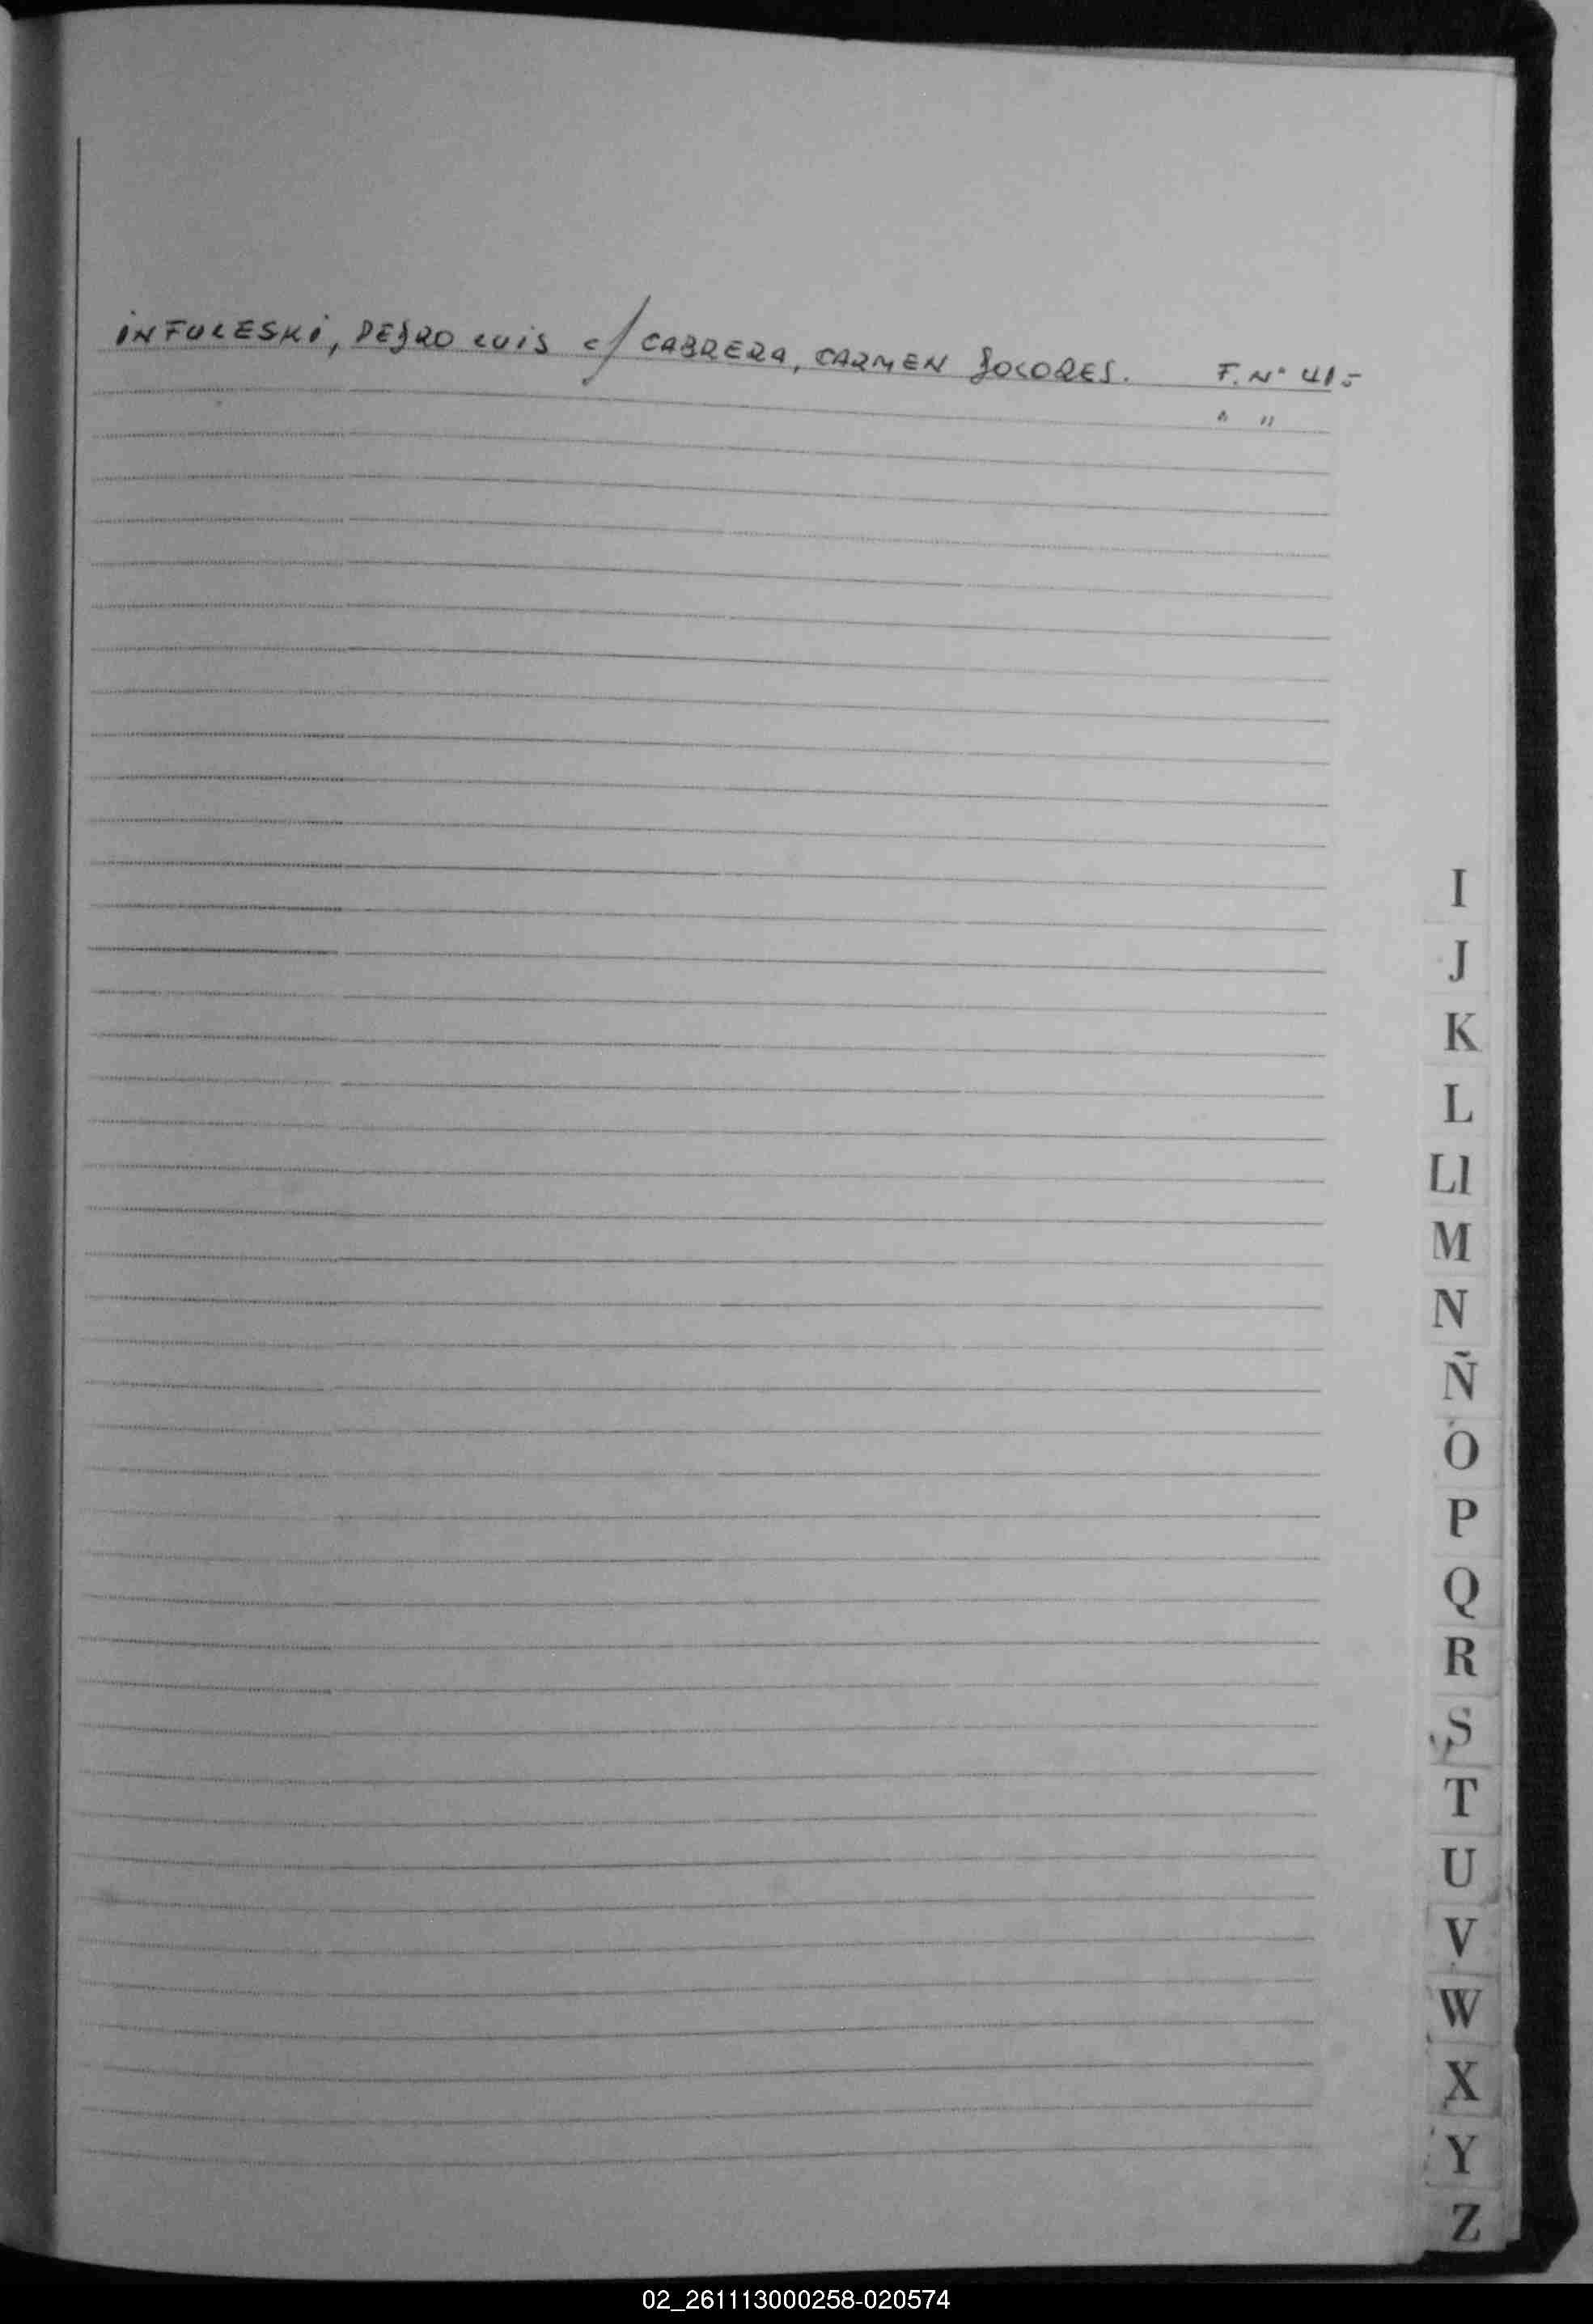 INFULESKI, PEDRO LUIS c/ CABRERA, CARMEN DOLORES. F. N° 41.-
" "
I
J
K
L
Ll
M
N
Ñ
O
P
Q
R
S
T
U
V
W
X
Y
Z
02_261113000258-020574